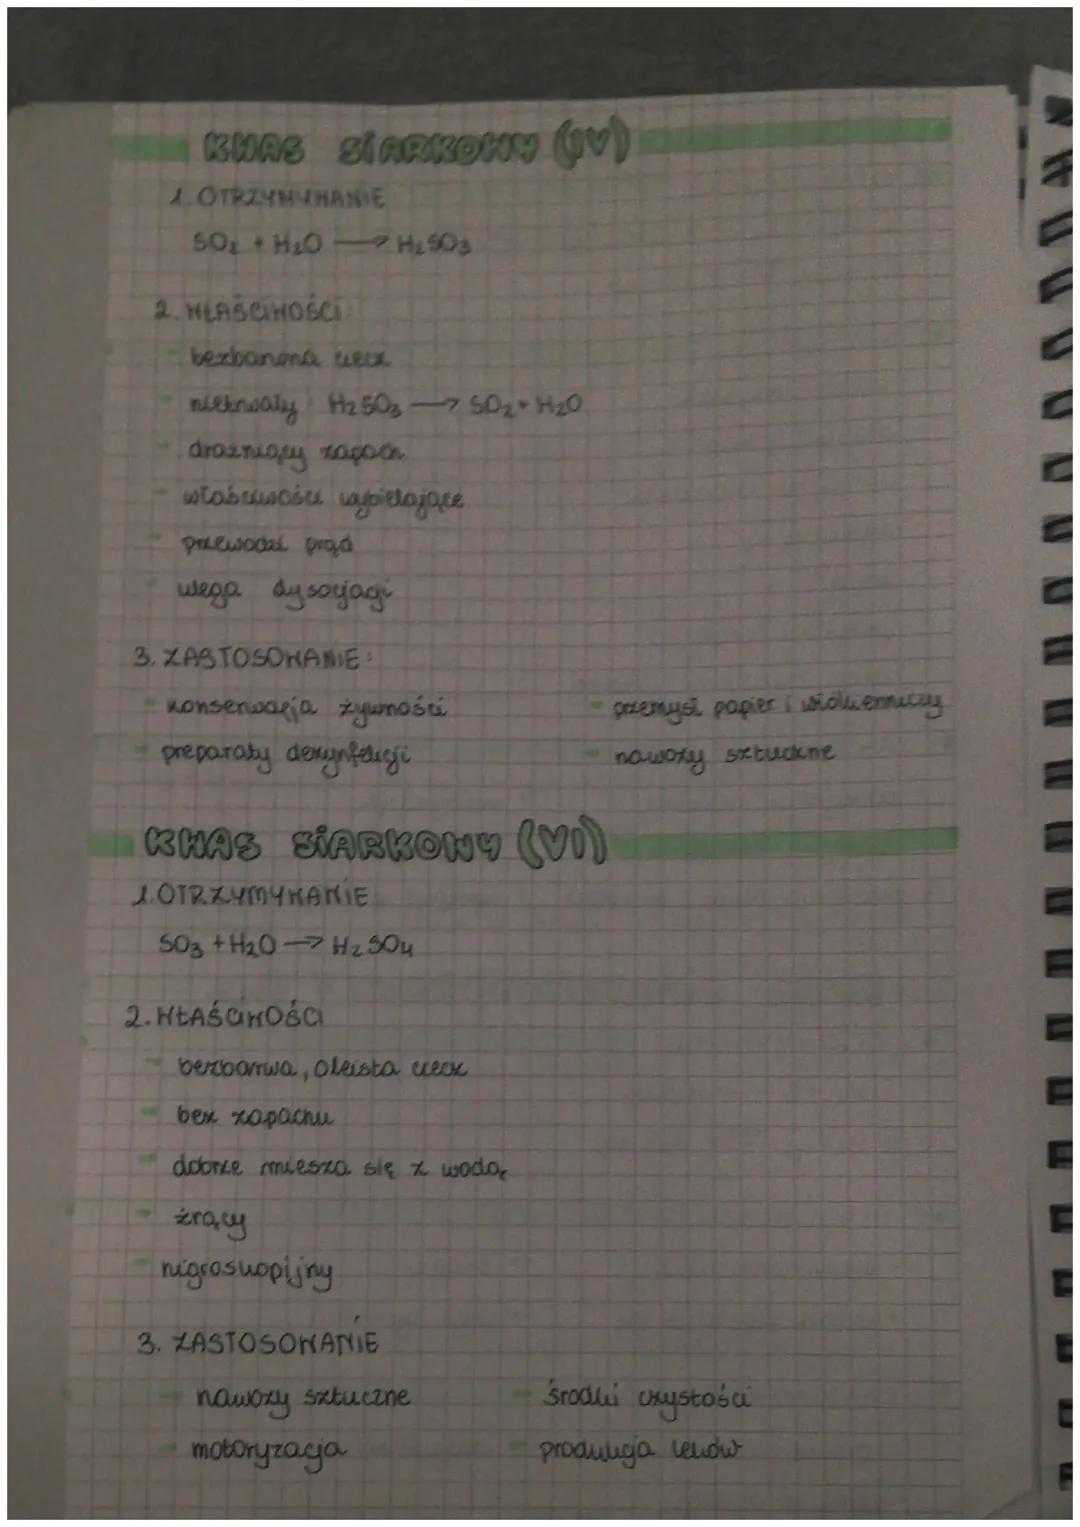 KWAS SIARKOWY (IV)
1. OTRZYMYWANIE
SO₂ + H₂O → H₂SO₃
2. WŁAŚCIWOŚCI:
- bezbarwna ciecz
- nietrwały H₂SO₃ → SO₂ + H₂O
- drażniący zapach
- właściwości wybielające
- przewodzi prąd
- ulega dysocjacji
3. ZASTOSOWANIE:
- konserwacja żywności
- preparaty dezynfekcji
- przemysł papier i włókienniczy
- nawozy sztuczne
KWAS SIARKOWY (VI)
1. OTRZYMYWANIE
SO₃ + H₂O → H₂SO₄
2. WŁAŚCIWOŚCI
- bezbarwa, oleista ciecz
- bez zapachu
- dobrze miesza się z wodą
- żrący
- higroskopijny
3. ZASTOSOWANIE
- nawozy sztuczne
- motoryzacja
- środki czystości
- produkcja leków